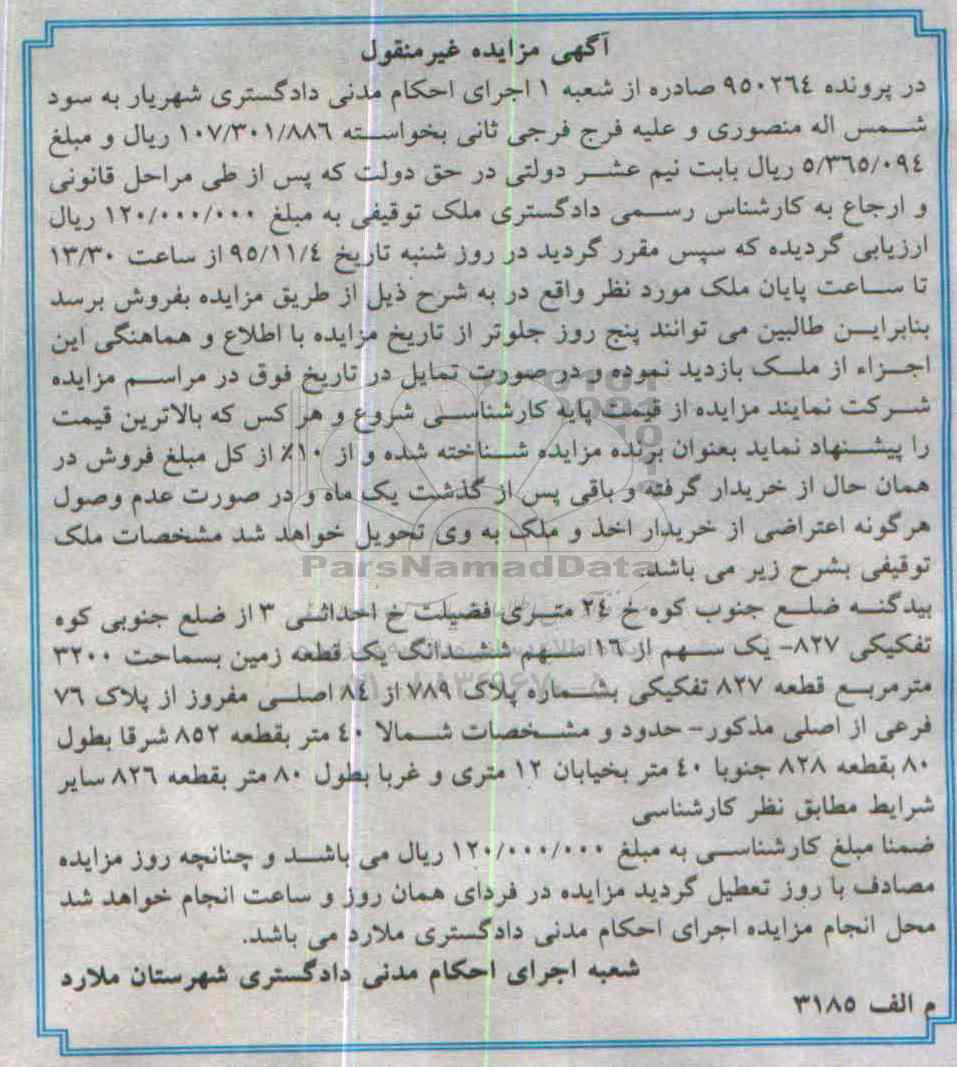 آگهی مزایده غیرمنقول
در پرونده ۹۵۰۲۶۴ صادره از شعبه ۱ اجرای احکام مدنی دادگستری شهریار به سود
شمس اله منصوری و علیه فرج فرجی ثانی بخواسته ۱۰۷/۳۰۱/۸۸۶ ریال و مبلغ
۵/۳۶۵/۰۹۴ ریال بابت نیم عشر دولتی در حق دولت که پس از طی مراحل قانونی
و ارجاع به کارشناس رسمی دادگستری ملک توقیفی به مبلغ ۱۲۰/۰۰۰/۰۰۰ ریال
ارزیابی گردیده که سپس مقرر گردید در روز شنبه تاریخ ۹۵/۱۱/۴ از ساعت ۱۳/۳۰
تا ساعت پایان ملک مورد نظر واقع در به شرح ذیل از طریق مزایده بفروش برسد
بنابراین طالبین می توانند پنج روز جلوتر از تاریخ مزایده با اطلاع و هماهنگی این
اجزاء از ملک بازدید نموده و در صورت تمایل در تاریخ فوق در مراسم مزایده
شرکت نمایند مزایده از قیمت پایه کارشناسی شروع و هر کس که بالاترین قیمت
را پیشنهاد نماید بعنوان برنده مزایده شناخته شده و از ۱۰٪ از کل مبلغ فروش در
همان حال از خریدار گرفته و باقی پس از گذشت یک ماه و در صورت عدم وصول
هرگونه اعتراضی از خریدار اخذ و ملک به وی تحویل خواهد شد مشخصات ملک
توقیفی بشرح زیر می باشد.
ParsNamadData
بیدگنه ضلع جنوب کوه خ ۲۴ متری فضیلت خ احداثی ۳ از ضلع جنوبی کوه
تفکیکی ۸۲۷- یک سهم از ۱۶ سهم ششدانگ یک قطعه زمین بسماحت ۳۲۰۰
مترمربع قطعه ۸۲۷ تفکیکی بشماره پلاک ۷۸۹ از ۸۴ اصلی مفروز از پلاک ۷۶
فرعی از اصلی مذکور- حدود و مشخصات شمالا ۴۰ متر بقطعه ۸۵۲ شرقا بطول
۸۰ بقطعه ۸۲۸ جنوبا ۴۰ متر بخیابان ۱۲ متری و غربا بطول ۸۰ متر بقطعه ۸۲۶ سایر
شرایط مطابق نظر کارشناسی
ضمنا مبلغ کارشناسی به مبلغ ۱۲۰/۰۰۰/۰۰۰ ریال می باشد و چنانچه روز مزایده
مصادف با روز تعطیل گردید مزایده در فردای همان روز و ساعت انجام خواهد شد
محل انجام مزایده اجرای احکام مدنی دادگستری ملارد می باشد.
شعبه اجرای احکام مدنی دادگستری شهرستان ملارد
م الف ۳۱۸۵